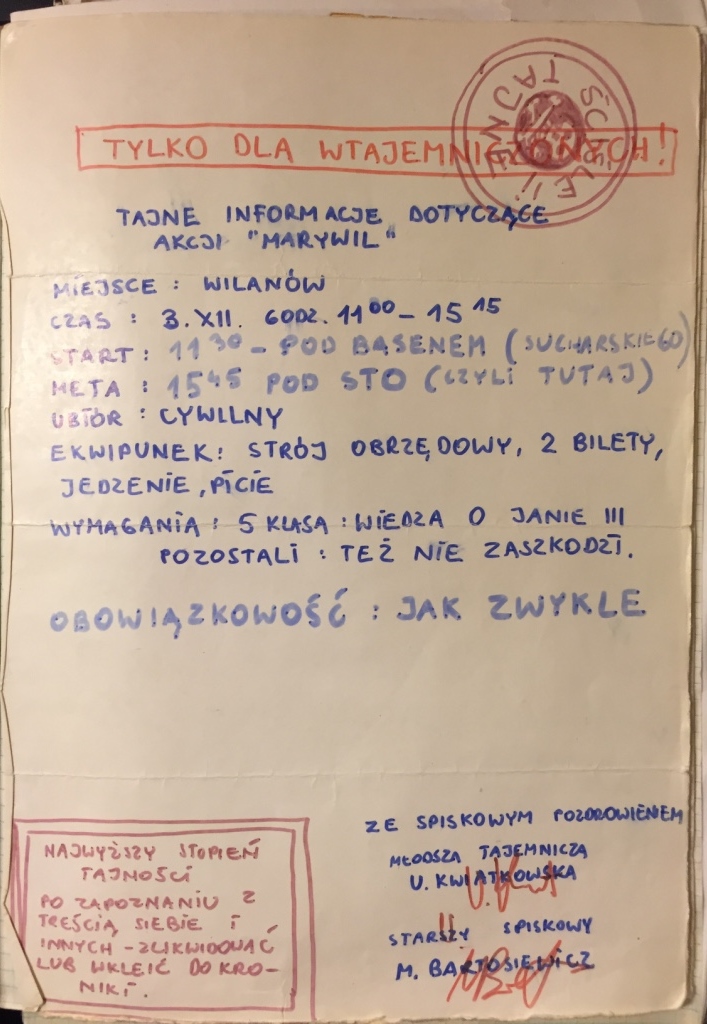 ŚCIŚLE TAJNE!!
TYLKO DLA WTAJEMNICZONYCH!
TAJNE INFORMACJE DOTYCZĄCE
AKCJI "MARYWIL"
MIEJSCE : WILANÓW
CZAS : 3.XII. GODZ. 11⁰⁰ - 15¹⁵
START : 11³⁰ - POD BASENEM (SUCHARSKIEGO)
META : 15⁴⁵ POD STO (CZYLI TUTAJ)
UBIÓR : CYWILNY
EKWIPUNEK: STRÓJ OBRZĘDOWY, 2 BILETY,
JEDZENIE, PICIE
WYMAGANIA : 5 KLASA : WIEDZA O JANIE III
POZOSTALI : TEŻ NIE ZASZKODZI.
OBOWIĄZKOWOŚĆ : JAK ZWYKLE
ZE SPISKOWYM POZDROWIENIEM
MŁODSZA TAJEMNICZA
U. KWIATKOWSKA
STARSZY SPISKOWY
M. BARTOSIEWICZ
NAJWYŻSZY STOPIEŃ
TAJNOŚCI
PO ZAPOZNANIU Z
TREŚCIĄ SIEBIE I
INNYCH - ZLIKWIDOWAĆ
LUB WKLEIĆ DO KRO-
NIKI.